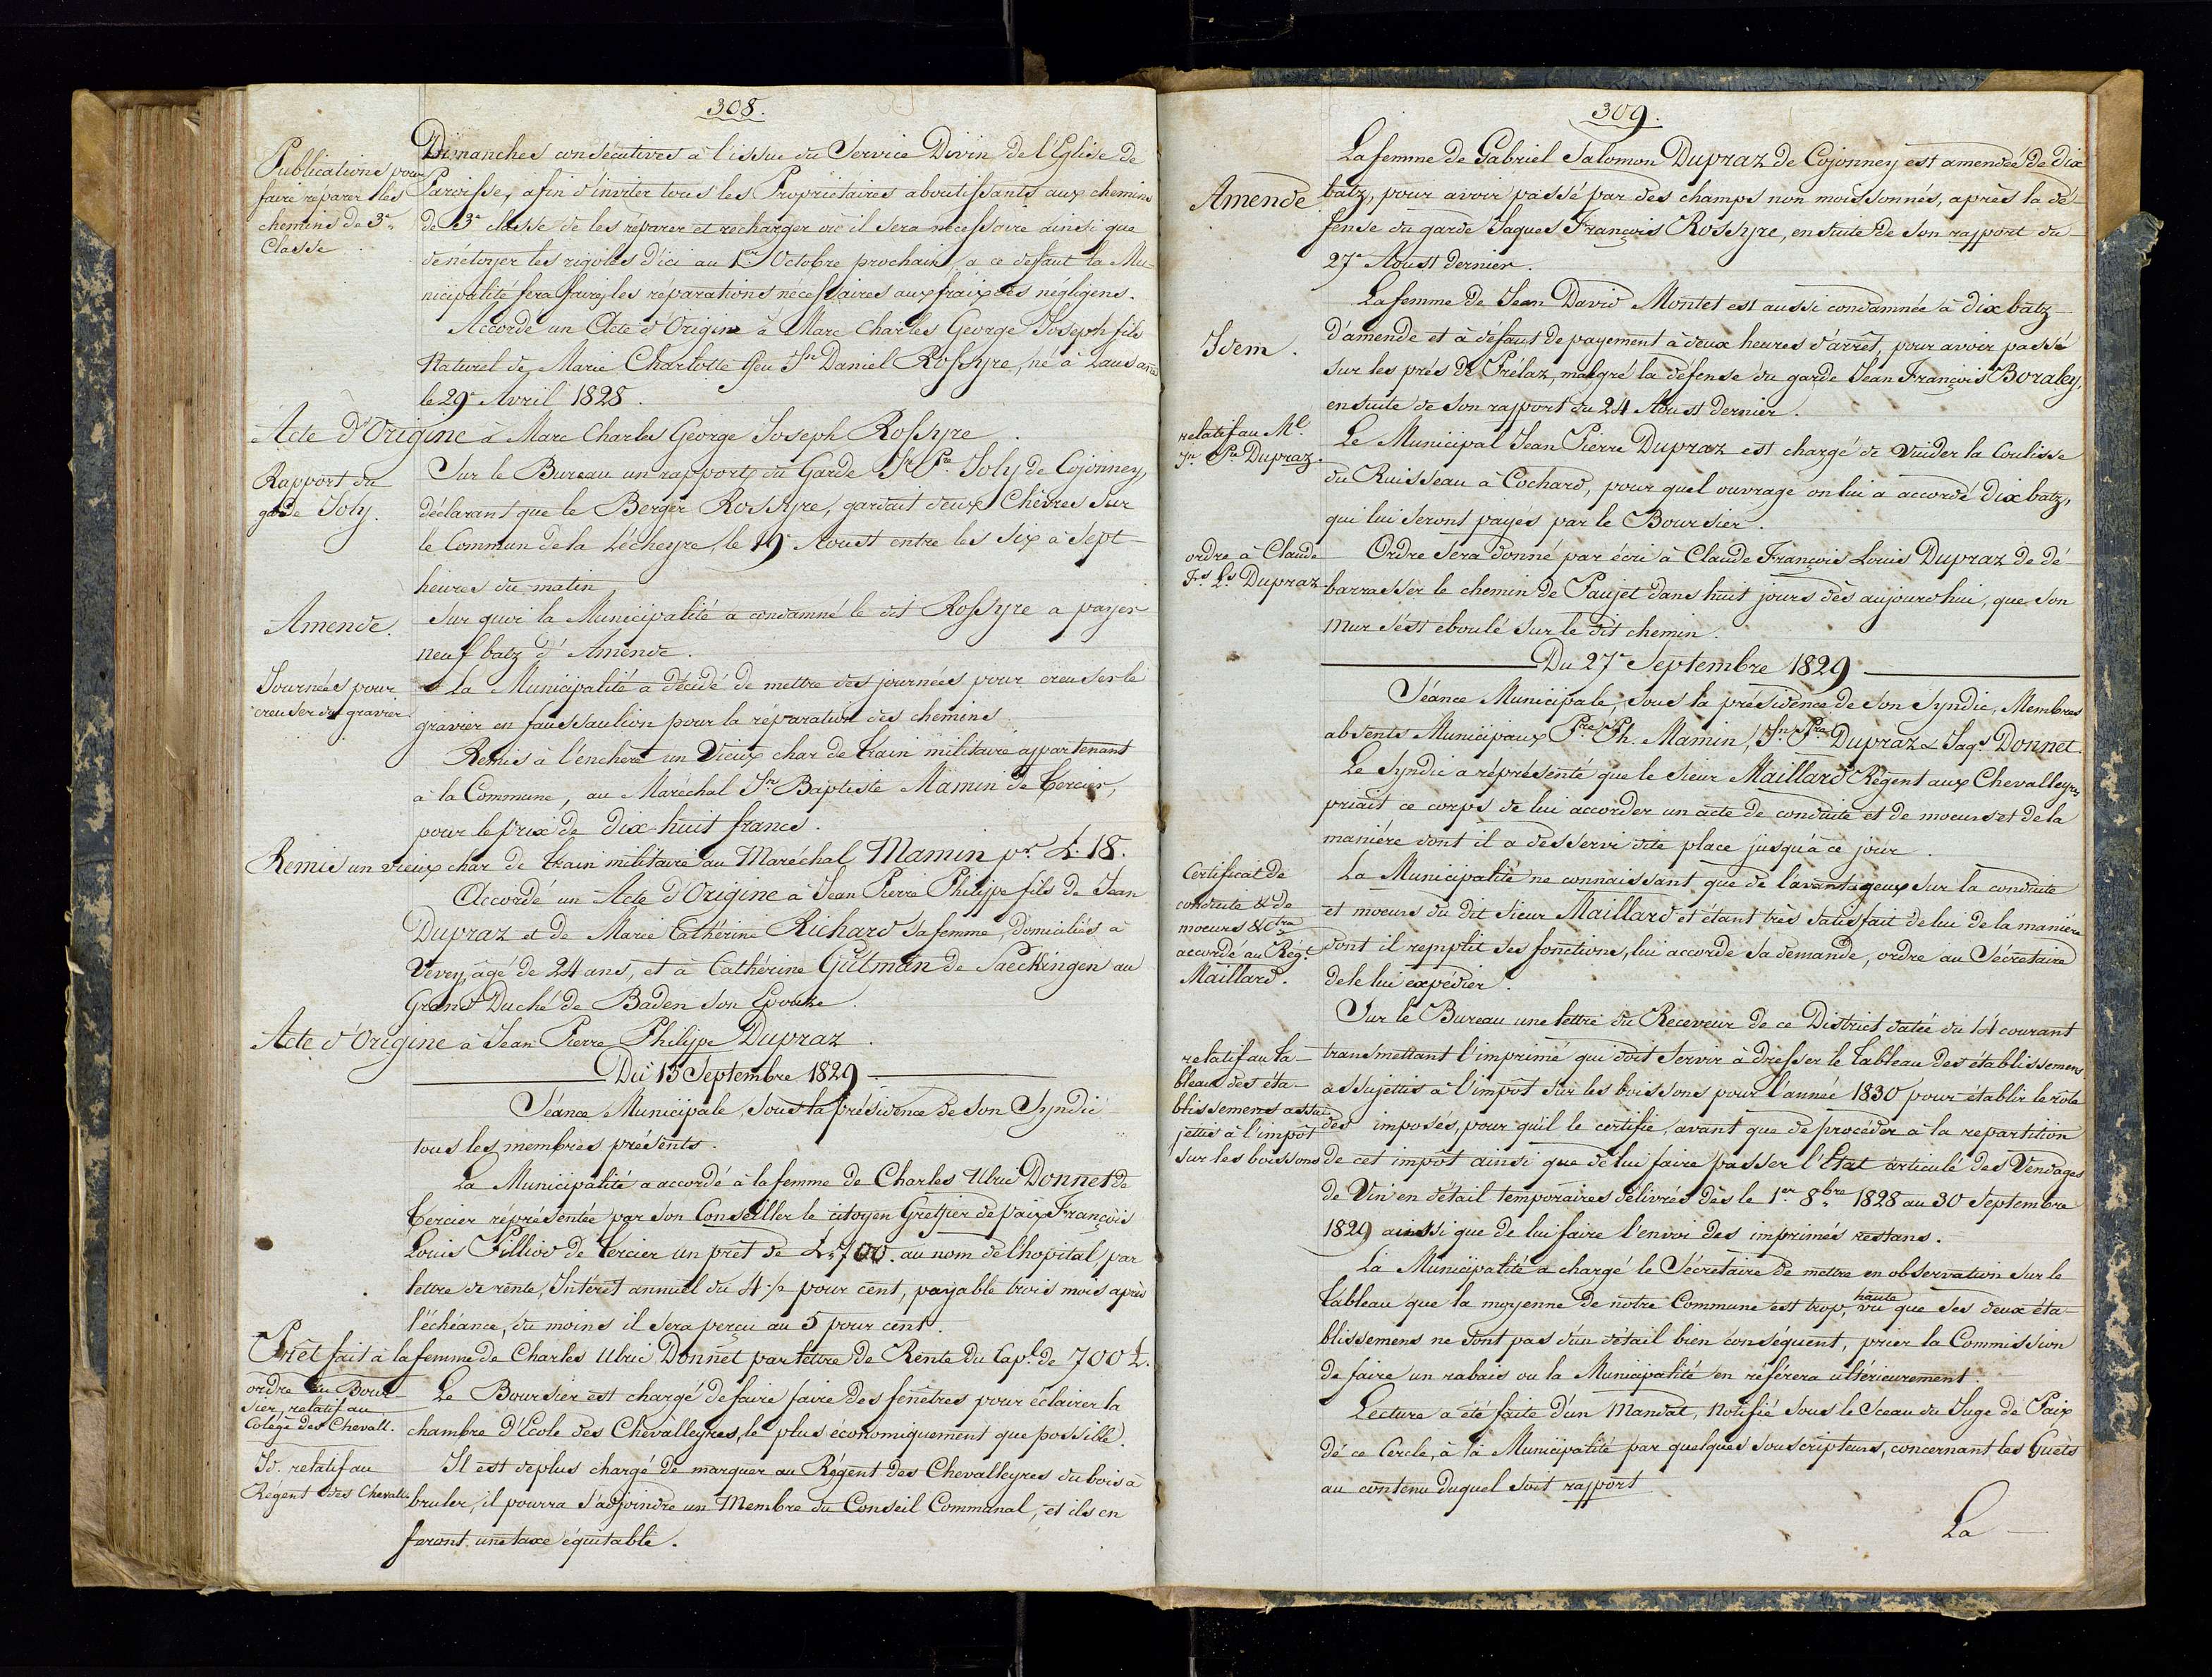 308.
Publications pour
faire réparer les
chemins de 3e
Classe
Dimanches consécutives à l'issue du Service Divin de l'Eglise de
Paroisse, afin d'inviter tous les Propriétaires aboutissants aux chemins
de 3e classe de les réparer et recharger où il sera nécessaire ainsi que
denétoyer les rigoles d'ici au 1er Octobre prochain, a ce défaut la Mu-
nicipalité fera faire les réparations nécessaires aux fraix des négligens.
Accordé un Acte d'Origine à Marc Charles George Joseph fils
Naturel de Marie Charlotte feu Jn Daniel Rossyre, né à Lausanne
le 29e Avril 1828.
Acte d'Origine à Marc Charles George Joseph Rossyre.
Rapport du
garde Joly.
Sur le Bureau un rapport du Garde Jn Pre Joly de Cojonney,
déclarant que le Berger Rossyre, gardait deux Chèvres sur
le Commun de la Lécheyre, le 19e Aoust entre les six à sept
heures du matin
Amende.
Sur quoi la Municipalité a condamné le dit Rossyre a payer
neuf batz d'Amende.
Journées pour
creuser du gravier
La Municipalité a décidé de mettre des journées pour creuser le
gravier en faussaulion pour la réparation des chemins
Remis à l'enchère un Vieux char de train militaire appartenant
à la Commune, au Maréchal Jn Baptiste Mamin de Tercier,
pour le prix de dix-huit francs.
Remis un vieux char de train militaire au Maréchal Mamin pr L. 18.
Accordé un Acte d'Origine à Jean Pierre Philippe fils de Jean
Dupraz et de Marie Cathérine Richard sa femme, domiciliés à
Vevey, âgé de 24 ans, et à Cathérine Gütman de Saeckingen au
Grand Duché de Baden son Epouse.
Acte d'Origine à Jean Pierre Philippe Dupraz.
Du 13 Septembre 1829
Séance Municipale, sous la présidence de son Syndic
tous les membres présents.
La Municipalité a accordé à la femme de Charles Ulric Donnet de
Tercier réprésentée par son Conseiller le citoyen Greffier de paix François
Louis Pilliod de Tercier un prêt de L. 700. au nom de l'hopital par
lettre de rente, Intérêt annuel du 4 ½ pour cent, payable trois mois après
l'échéance, du moins il sera perçu au 5 pour cent.
Prêt fait à la femme de Charles Ulric Donnet par lettre de Rente du Capl. de 700 L.
ordre au Bour-
sier, relatif au
Colège des Chevall.
Le Boursier est chargé de faire faire des fenêtres pour éclairer la
chambre d'Ecole des Chevalleyres, le plus économiquement que possible.
Id. relatif au
Régent des Chevall.
Il est deplus chargé de marquer au Régent des Chevalleyres du bois à
bruler, il pourra s'adjoindre un Membre du Conseil Communal, et ils en
feront une taxe équitable.
309.
Amende
La femme de Gabriel Salomon Dupraz de Cojonney est amendée de dix
batz, pour avoir passé par des champs non moissonnés, après la dé-
fense du garde Jaques François Rossyre, ensuite de son rapport du
27e Aoust dernier.
Idem.
La femme de Jean David Montet est aussi condamnée à dix batz
d'amende et à défaut de payement à deux heures d'arrêt, pour avoir passé
sur les prés de Prélaz, malgré la défense du garde Jean François Boraley,
ensuite de son rapport du 24 Aoust dernier.
relatif au Ml.
Jn. Pe. Dupraz.
Le Municipal Jean Pierre Dupraz est chargé de vuider la Coulisse
du Ruisseau à Cochard, pour quel ouvrage on lui a accordé dix batz,
qui lui seront payés par le Boursier.
ordre à Claude
Fs. Ls. Dupraz
Ordre sera donné par écri à Claude François Louis Dupraz de dé-
barrasser le chemin de Paujet dans huit jours dès aujourdhui, que son
mur s'est eboulé sur le dit chemin.
Du 27e Septembre 1829
Séance Municipale, sous la présidence de son Syndic, Membres
absents Municipaux Pre Ph. Mamin, Jn Pre Dupraz & Jaqs Donnet.
Le Syndic a réprésenté que le sieur Maillard Régent aux Chevalleyres
priait ce corps de lui accorder un acte de conduite et de moeurs et de la
manière dont il a desservi dite place jusqu'à ce jour.
Certificat de
conduite & de
moeurs &ctra
accordé au Rég.t
Maillard.
La Municipalité ne connaissant que de l'avantageux sur la conduite
et moeurs du dit Sieur Maillard et étant très satisfait de lui de la manière
dont il remplit ses fonctions, lui accorde sa demande, ordre au Sécretaire
de le lui expédier.
relatif au ta-
bleau des éta-
blissemens assu-
jettis à l'impôt
sur les boissons
Sur le Bureau une lettre du Receveur de ce District datée du 14 courant
transmettant l'imprimé qui doit servir à dresser le tableau des établissemens
assujettis à l'impôt sur les boissons pour l'année 1830 pour établir le rôle
des imposés, pour qu'il le certifie, avant que de procéder à la repartition
de cet impôt ainsi que de lui faire passer l'Etat articulé des Vendages
de Vin en détail temporaires délivrés dès le 1er 8bre 1828 au 30 Septembre
1829 aussi que de lui faire l'envoi des imprimés restans.
La Municipalité a chargé le Sécretaire de mettre en observation sur le
tableau que la moyenne de notre Commune est trop haute, vu que ses deux éta-
blissemens ne sont pas d'un détail bien conséquent, prier la Commission
de faire un rabais ou la Municipalité en référera ultérieurement.
Lecture a été faite d'un Mandat, Notifié sous le Sceau du Juge de Paix
de ce Cercle, à la Municipalité par quelques souscripteurs, concernant les Guets
au contenu duquel soit rapport
La